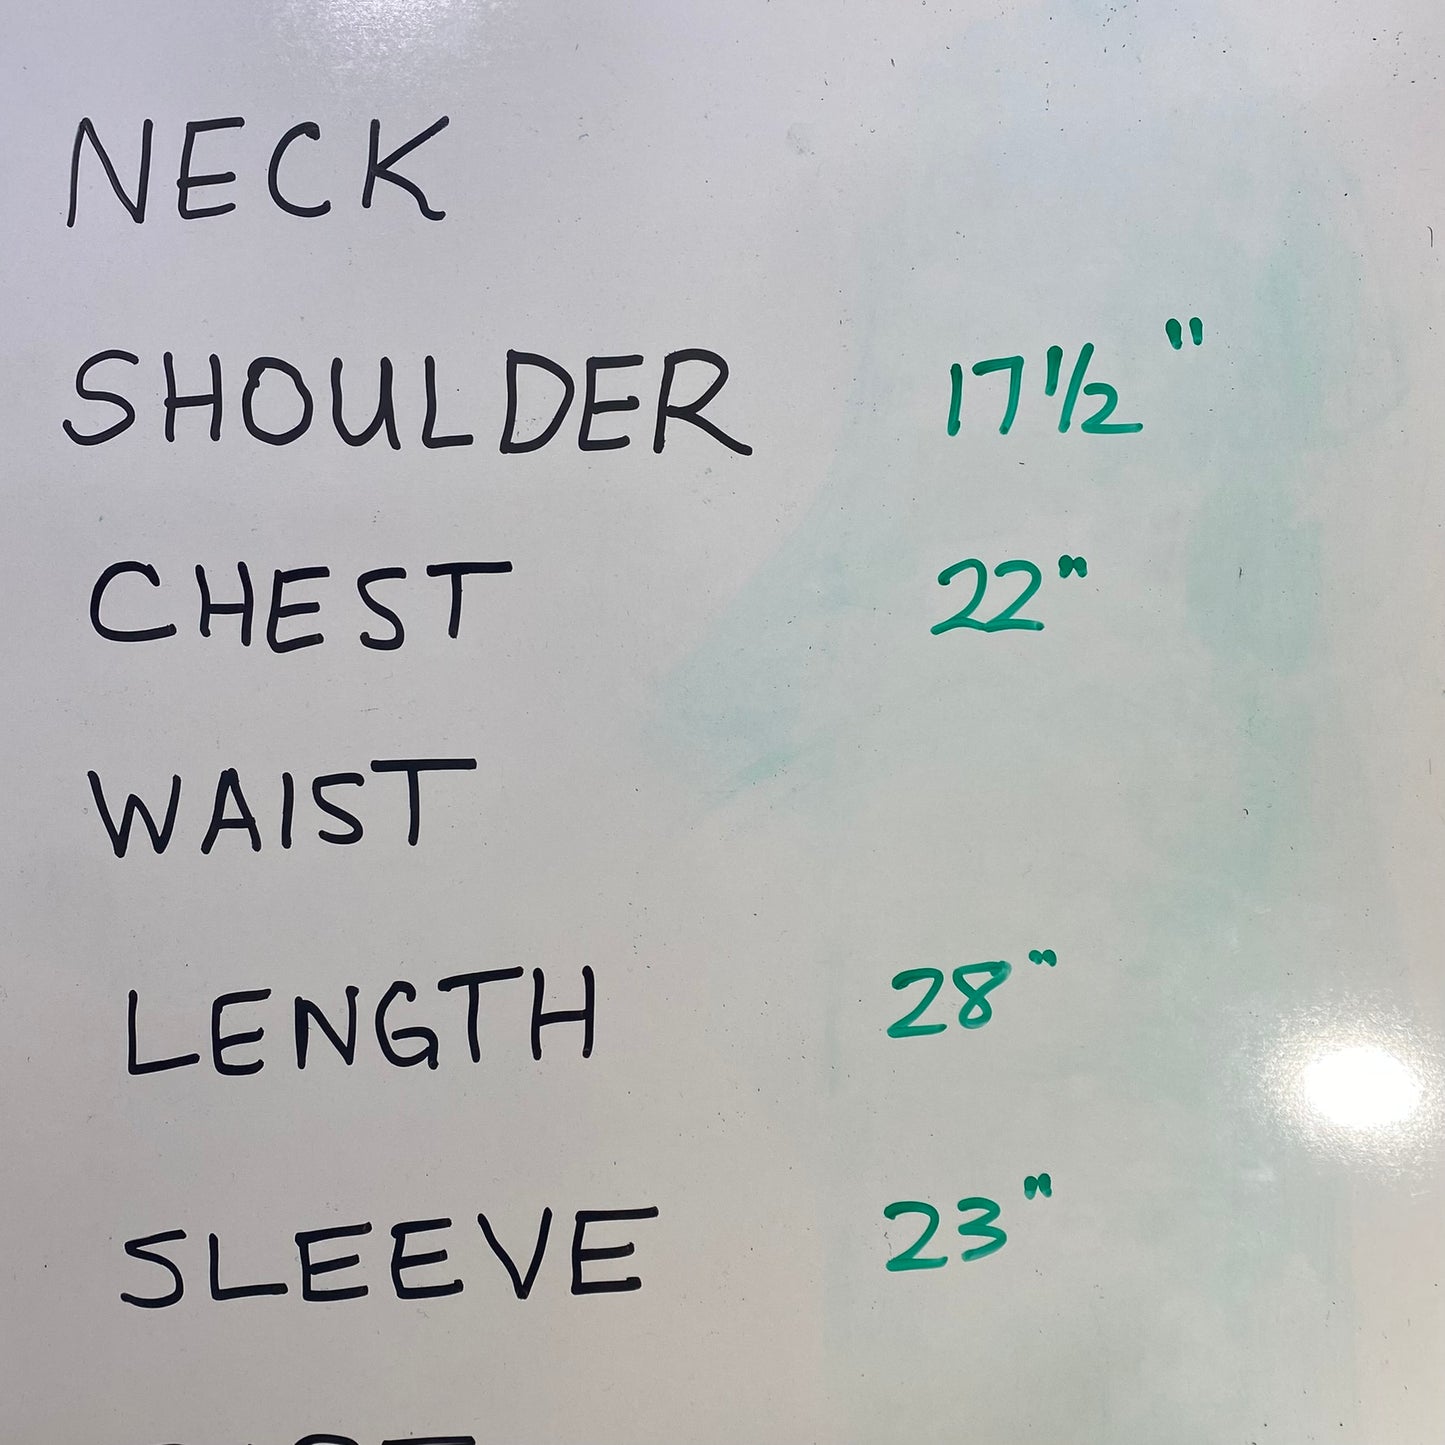 NECK
SHOULDER 17 1/2"
CHEST 22"
WAIST
LENGTH 28"
SLEEVE 23"